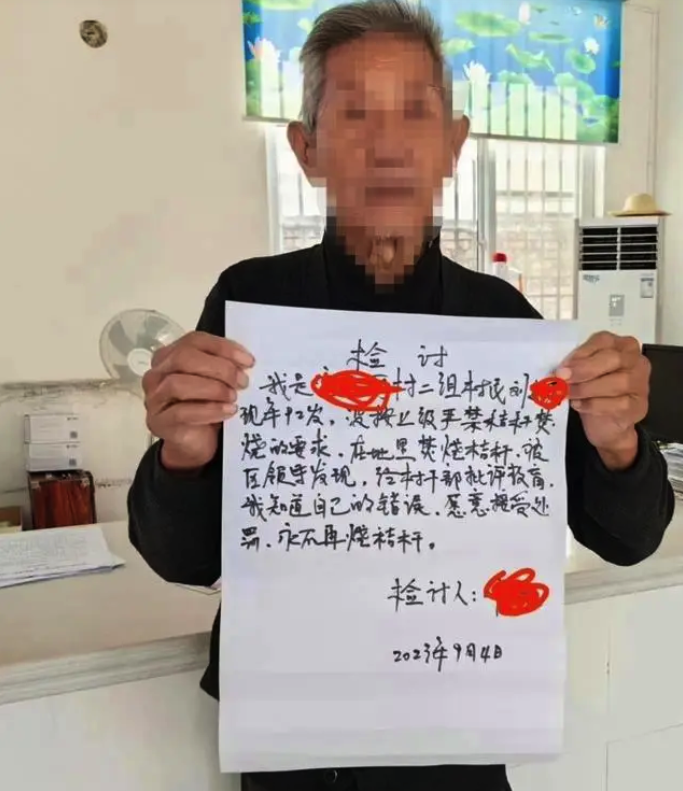 检 讨
我是村二组村民刘
现年92岁，没按上级严禁秸秆焚
烧的要求，在地里焚烧秸秆，被
区领导发现，给村干部批评教育，
我知道自己的错误，愿意接受处
罚、永不再烧秸秆。
检讨人：
2023年9月4日